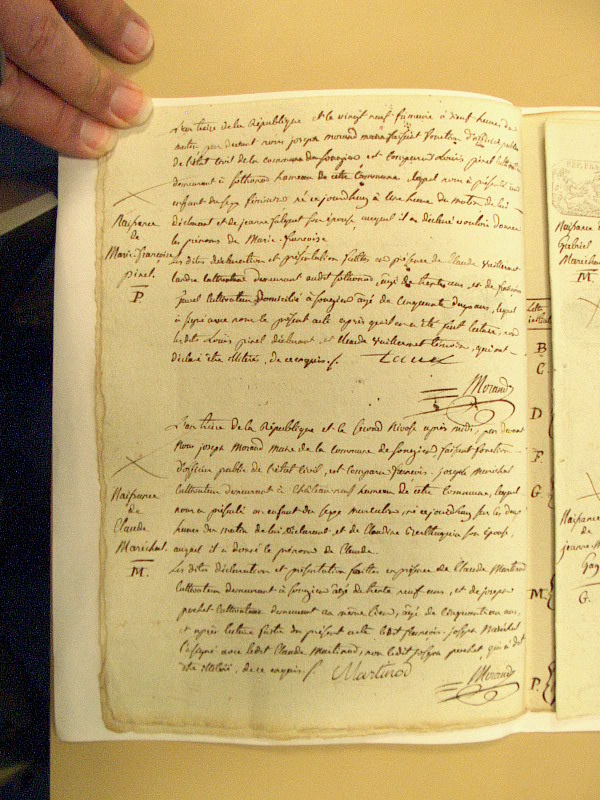 L'an treize de la République et le vingt neuf frimaire à dieut heures du
matin par devant nous joseph morand maire faisant fonction d'officier public
de l'état civil de la commune de songieu est comparu Louis pinel
demeurant à sothonod hameau de cette commune, lequel nous a présenté un
enfant du sexe féminin né ce jourdhuy à heure du matin de lui
déclarant et de jeanne son épouse, auquel il a déclaré vouloir donner
les prénoms de Marie françoise
Les dites déclaration et présentation faites en présence de Claude Vuillermet
cultivateur demeurant audit sothonod, âgé de trente ans, et de
cultivateur Domicilié à songieu âgé de Cinquante ans, lequel
a signé avec nous le présent acte après qu'il en a été fait lecture, non
les dits Louis pinel déclarant, et Claude Vuillermet témoin, qui ont
déclaré être illitéré, de ce enquis.
Morand
Naissance
de
Marie françoise
pinel.
P
L'an treize de la République et le Second Nivose après midi, par devant
Nous joseph Morand Maire de la commune de songieu faisant fonction
d'officier public de l'état civil, est comparu françois joseph Maréchal
cultivateur demeurant à Châteauneuf hameau de cette commune, lequel
nous a présenté un enfant du sexe masculin, né ce jourdhuy sur les deux
heures du matin de lui déclarant, et de Claudine son Epouse,
auquel il a donné le prénom de Claude.
Les dites déclaration et présentation faites en présence de Claude Martinod
cultivateur demeurant à songieu âgé de trente neuf ans, et de joseph
perchet cultivateur demeurant au même lieu, âgé de cinquante un ans,
et après lecture faite du présent acte ledit françois joseph Maréchal
l'a signé avec ledit Claude Martinod, non ledit joseph perchet, qui a dit
être illitéré, de ce enquis.
Martinod
Morand
Naissance
de
Claude
Maréchal.
M.
B.
C.
D
F.
G.
M.
P.
Naissance
Gabriel
Maréchal
M.
Naissance
de
jeanne
G.